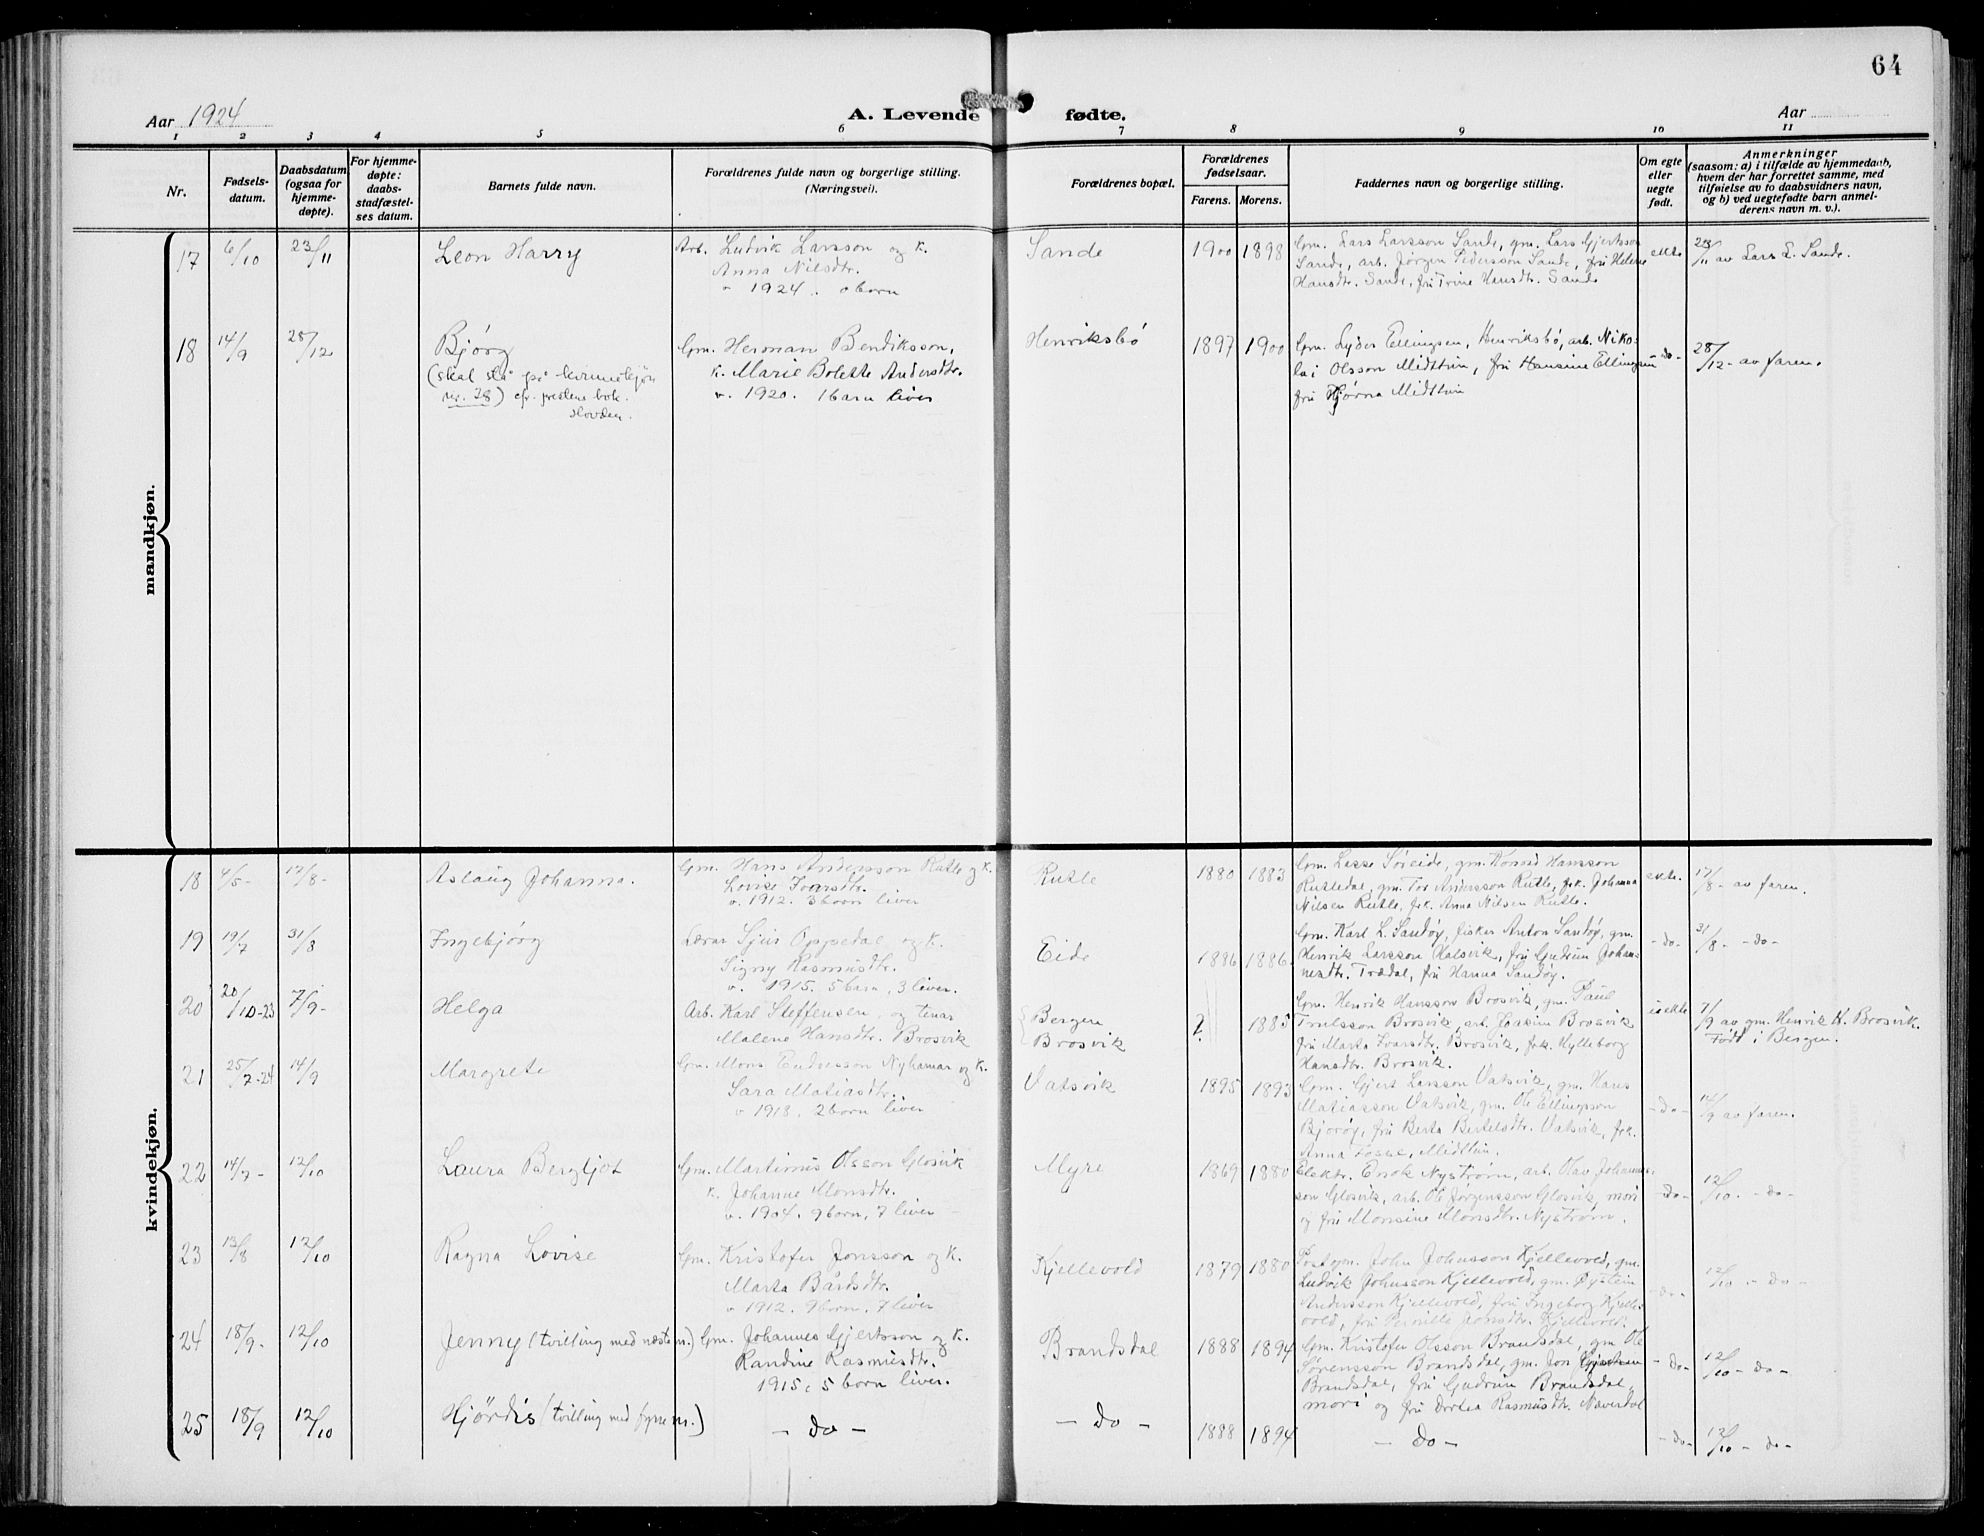 64
Aar 1924
A. Levende fødte.
Aar
1 2 3 4 5 6 7 8 9 10 11
Nr.
Fødsels-
datum.
Daabsdatum
(ogsaa for
hjemme-
døpte).
For hjemme-
døpte:
daabs-
stadfæstel-
ses datum.
Barnets fulde navn.
Forældrenes fulde navn og borgerlige stilling.
(Næringsvei).
Forældrenes bopæl.
Forældrenes
fødselsaar.
Farens. Morens.
Faddernes navn og borgerlige stilling.
Om egte
eller
uegte
født.
Anmerkninger
(saasom: a) i tilfælde av hjemmedaab,
hvem der har forrettet samme, med
tilføielse av to daabsvidners navn,
og b) ved uegtefødte barn anmel-
derens navn m. v.).
mandkjøn.
17 6/10 23/11 Leon Harry
Arb. Ludvik Larsson og k.
Anna Nilsdtr.
v 1924. 0 born
Sande 1900 1898
Gm. Lars Larsson Sande, gm. Lars Gjertsson
Sande, arb. Jørgen Pedersson Sande, fru Helene
Hansdtr. Sande, fru Trine Hansdtr. Sande
ekte 23/11 av Lars L. Sande.
18 14/9 28/12 Bjørg
(skal stå på kvinnekjøn
nr. 28) cfr. prestens bok.
Hovden.
Gm. Herman Bendiksson,
k. Marie Bolette Andersdtr.
v. 1920. 1 barn liver
Henriksbø 1897 1900
Gm. Lyder Ellingsen, Henriksbø, arb. Niko-
lai Olsson Midttun, fru Hansine Ellingsen
fru Hjørna Midttun
- do - 28/12 - av faren.
kvindekjøn.
18 4/5 - 17/8 - Aslaug Johanna.
Gm. Hans Andersson Rutle og k.
Lovise Ivarsdtr.
v. 1912. 3 born liver
Rutle 1880 1883
Gm. Lasse Søreide, gm. Hansson
Rutledal, gm. Tor Andersson Rutle, frk. Johanna
Nilsen Rutle, frk. Anna Nilsen Rutle.
ekte. 17/8 - av faren.
19 19/7 31/8 Ingebjørg
Lærar Sjur Oppedal og k.
Signy Rasmusdtr.
v. 1915. 5 barn, 3 liver.
Eide 1886 1886
Gm. Karl L. Sandøy, fisker Anton Sandøy, gm.
Henrik Larsson Halsvik, fru Gudrun Johan-
nesdtr. Trædal, fru Hanna Sandøy.
- do - 31/8 - do -
20 20/10-23 7/9 - Helga
Arb. Karl Steffensen, og tenar
Malene Hansdtr. Brosvik
Bergen
Brosvik
? 1885
Gm. Henrik Hansson Brosvik, gm. Paul
Trulsson Brosvik, arb. Joasim Brosvik
fru Marta Ivarsdtr. Brosvik, frk. Hylleborg
Hansdtr. Brosvik.
uekte 7/9 av gm. Henrik H. Brosvik.
Født i Bergen.
21 25/7-24 14/9 Margrete
Gm. Mons Nyhamar og k.
Sara Matiasdtr.
v 1918. 2 born liver
Vatsvik 1895 1893
Gm. Gjert Larsson Vatsvik, gm. Hans
Matiasson Vatsvik, gm. Ole Ellingsson
Bjorøy, fru Berta Bertelsdtr. Vatsvik, frk.
Anna Midttun.
- do - 14/9 av faren.
22 14/7 - 12/10 Laura Bergljot
Gm. Martinus Olsson Glosvik
k. Johanne Monsdtr.
v. 1904. 9 born, 7 liver
Myre 1869 1880
Elektr. Enok Nystrøm, arb. Olav Johannes-
son Glosvik, arb. Ole Jørgensson Glosvik, mori
og fru Monsine Monsdtr. Nystrøm.
- do - 12/10 - do -
23 13/8 12/10 Ragna Lovise
Gm. Kristofer Jonsson og k.
Marta Bårdsdtr.
v 1912. 9 born, 7 liver
Kjellevold 1879 1880
Postopn. John Johnsson Kjellevold, gm.
Ludvik Johnsson Kjellevold, gm. Øystein
Andersson Kjellevold, fru Ingeborg Kjelle-
vold, fru Pernille Jonsdtr. Kjellevold.
- do - 12/10 - do -
24 18/9 - 12/10 Jenny (tvilling med næste nr.)
Gm. Johannes Gjertsson og k.
Randine Rasmusdtr.
1915, 5 born liver.
Brandsdal 1888 1894
Gm. Kristofer Olsson Brandsdal, gm. Ole
Sørensson Brandsdal, gm. Jon
Brandsdal, fru Gudrun Brandsdal,
mori og fru Dortea Rasmusdtr. Næverdal
- do - 12/10 - do -
25 18/9 12/10 Hjördis (tvilling med fyrre nr.)
- do - - do - 1888 1894 - do - - do - 12/10 - do -